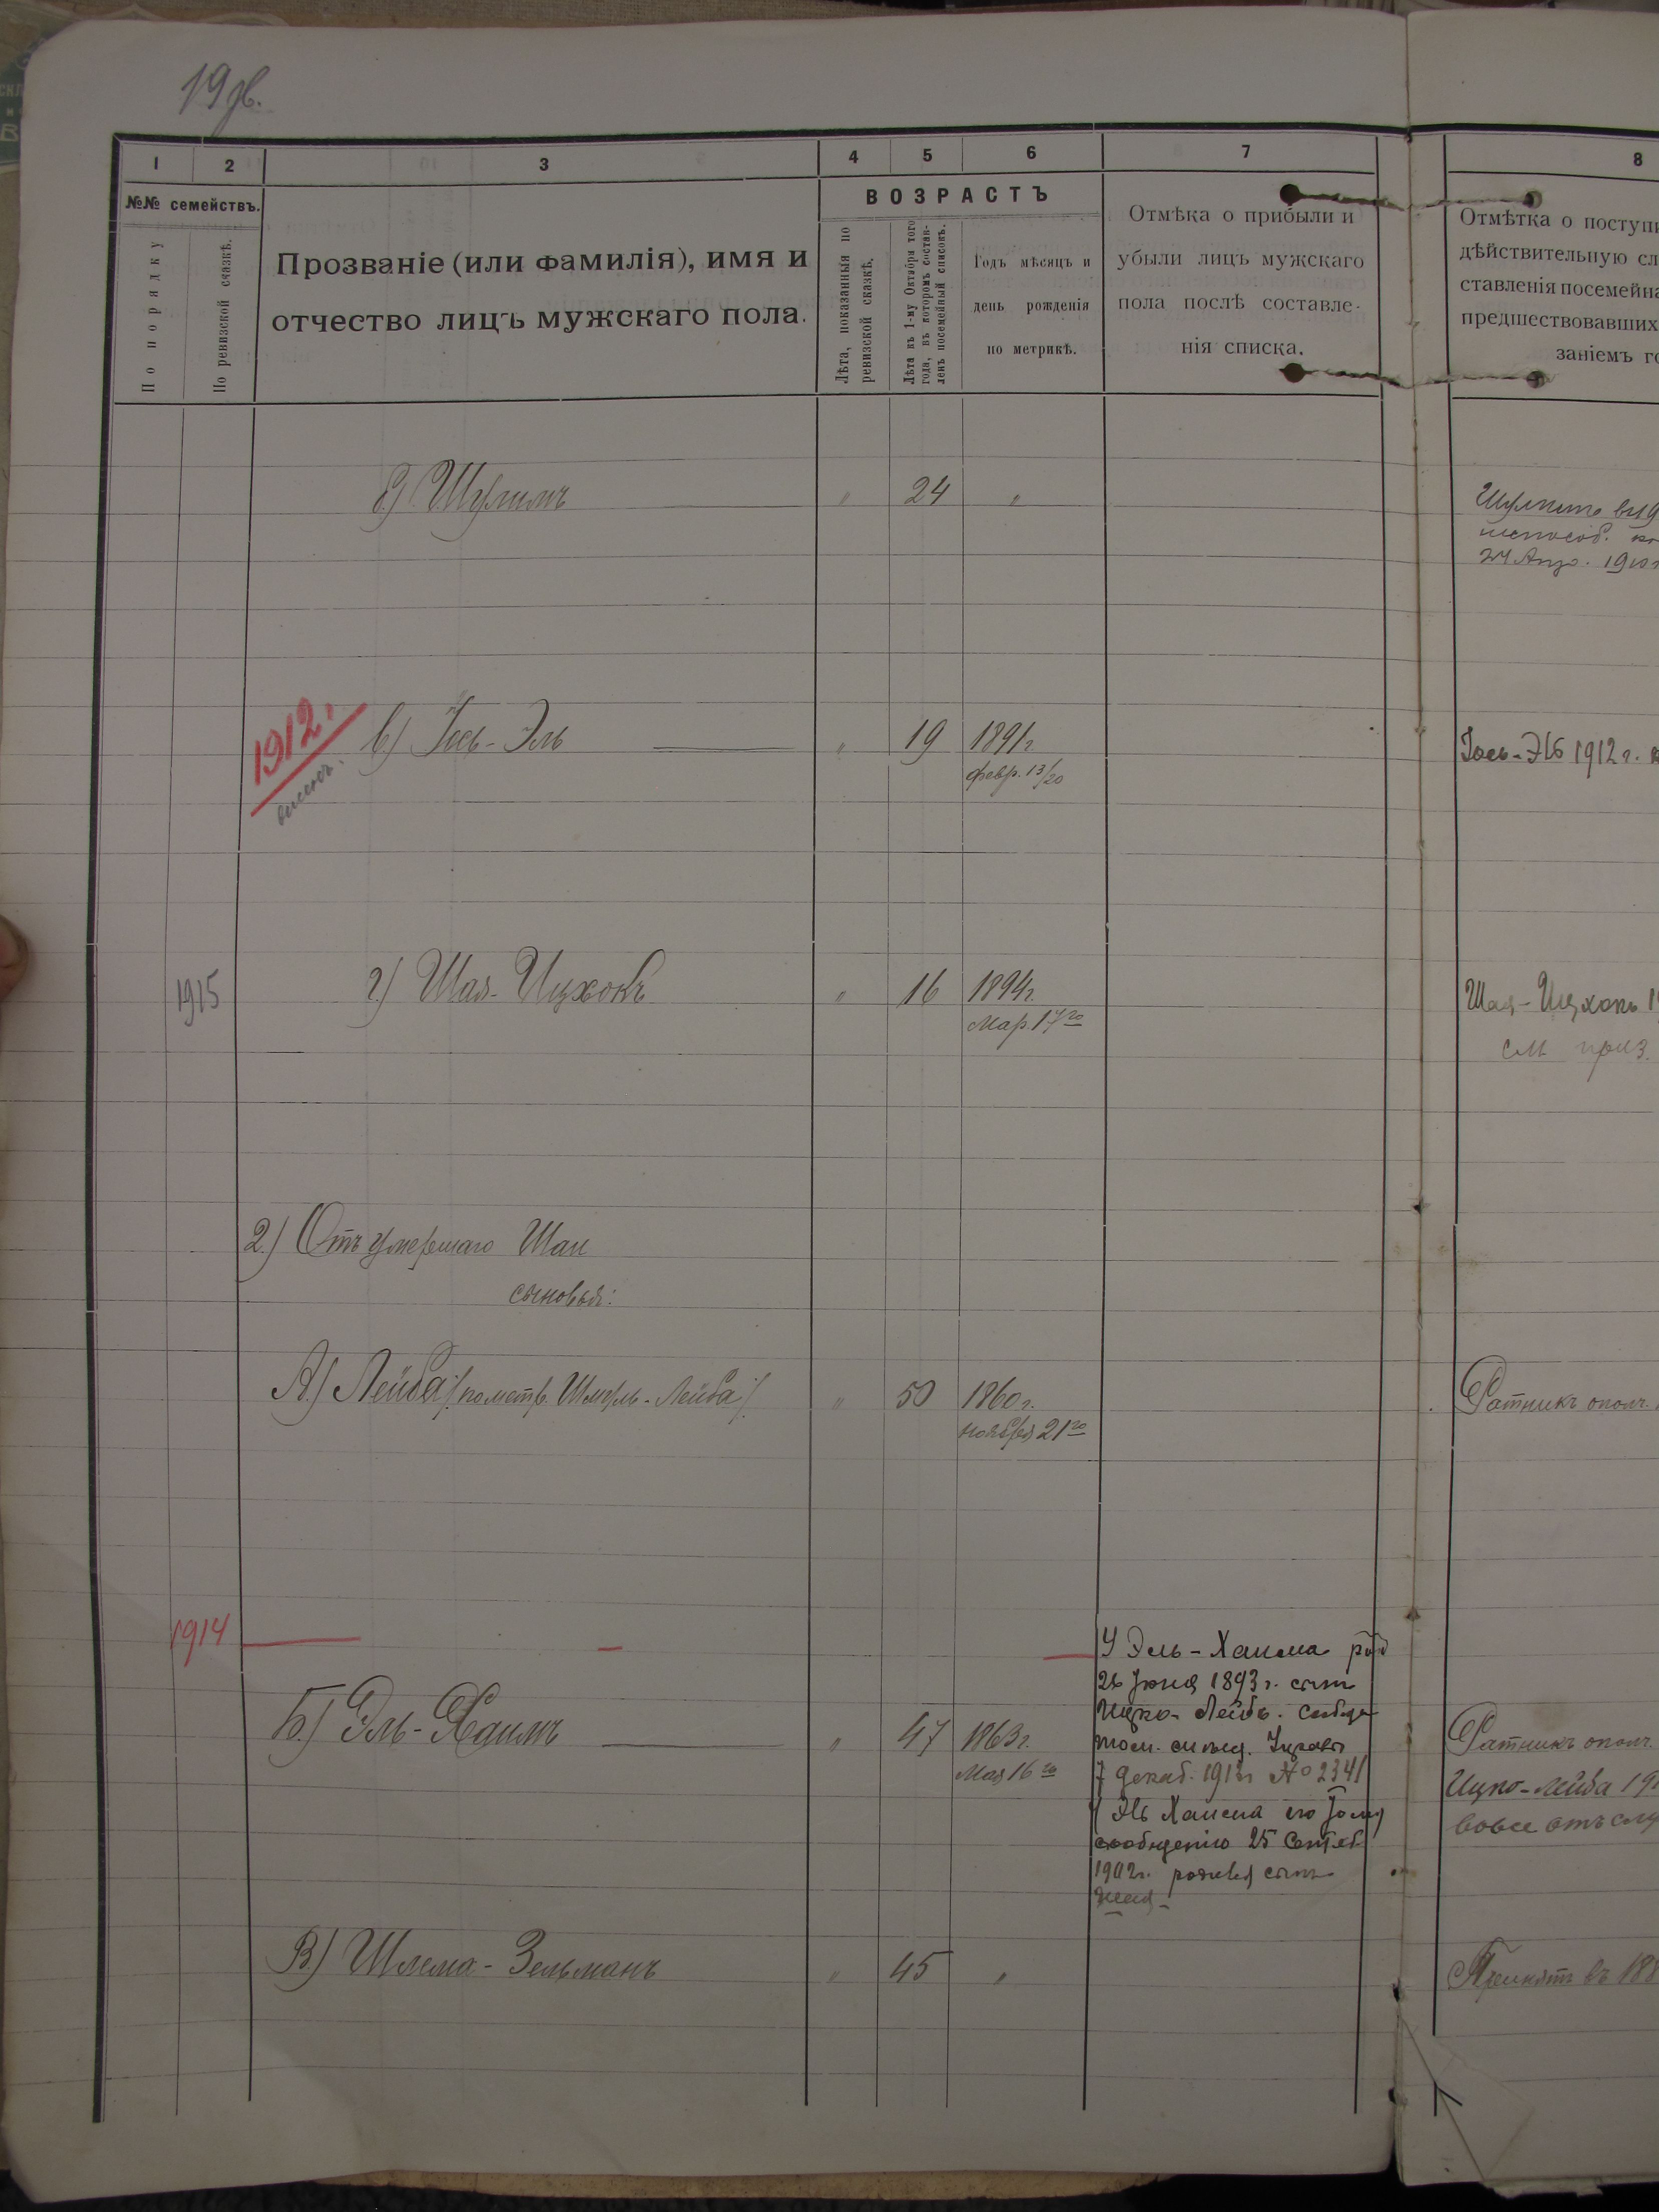 1 2 3 4 5 6 7 8
№№ семействъ.
По порядку
По ревизской сказкѣ.
Прозваніе (или фамилія), имя и
отчество лицъ мужскаго пола.
ВОЗРАСТЪ
Лѣта, показанныя по
ревизской сказкѣ.
Лѣта къ 1-му Октября того
года, въ которомъ состав-
ленъ посемейный списокъ.
Годъ мѣсяцъ и
день рожденія
по метрикѣ.
Отмѣка о прибыли и
убыли лицъ мужскаго
пола послѣ составле-
нія списка.
Отмѣтка о поступ
дѣйствительную сл
ставленія посемейна
предшествовавшихъ
заніемъ го
б) Шулимъ " 24 "
24 Апр. 1910
1912 г.
в) Іось-Эль " 19 1891 г.
февр. 13/20
Іось-Эль 1912 г.
1915 г) Шая-Ицхокъ " 16 1894 г.
Мар. 17го
Шая-Ицхокъ 19
см приз.
2) Отъ умершаго Шаи
сыновья:
А) Лейба /по метр. Шмуль-Лейба/ " 50 1860 г.
ноября 21го
Ратникъ ополч.
1914
У Эль-Хаима род
26 Іюня 1893 г. сынъ
Ицко-Лейба.
7 декаб. 1913 г № 2341
У Эль Хаима по
сообщенію 25 Сентяб
1902 г. родился сынъ
Шая
Б) Эль-Хаимъ " 47 1863 г.
Мая 16го
Ратникъ ополч.
Ицко-Лейба 191
вовсе отъ слу
В) Шлема-Зельманъ " 45 "
Принятъ въ 188